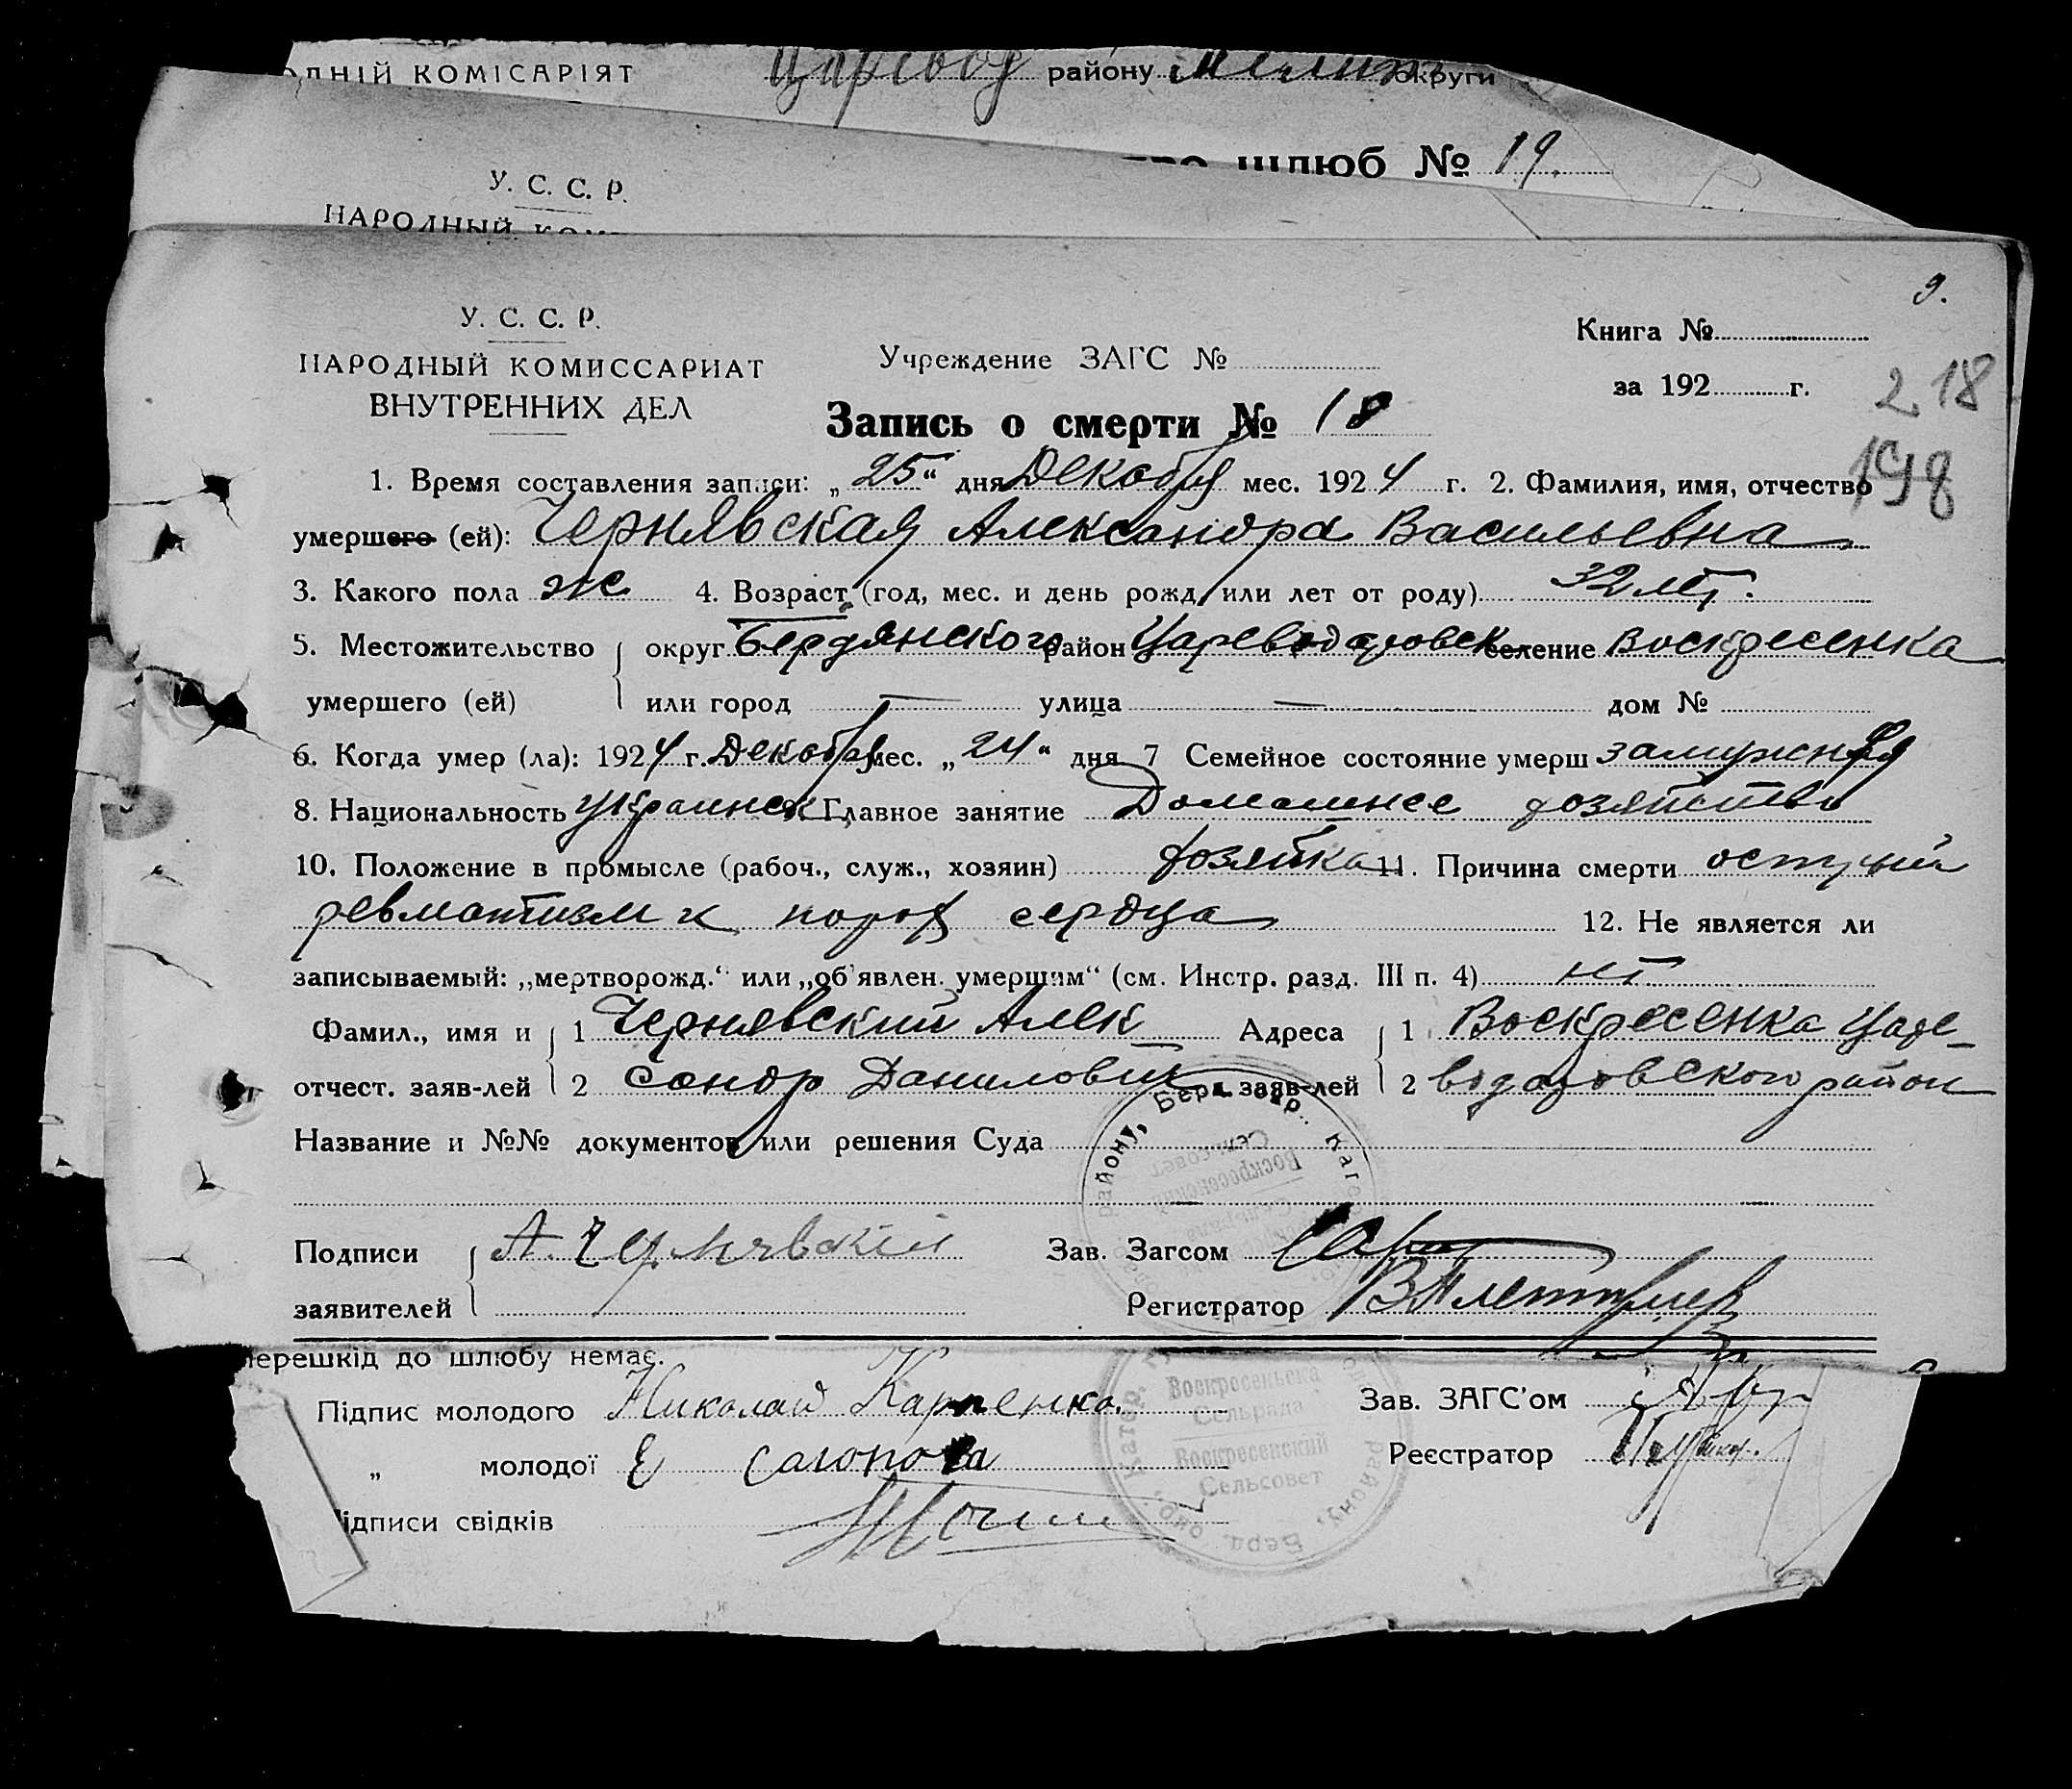 ОДНІЙ КОМІСАРІЯТ Царевод району Мелит округи
шлюб № 19.
У. С. С. Р.
НАРОДНЫЙ
9.
У. С. С. Р.
НАРОДНЫЙ КОМИССАРИАТ
ВНУТРЕННИХ ДЕЛ
Учреждение ЗАГС №
Книга №
за 192 г.
218
198
Запись о смерти № 18
1. Время составления записи: „25“ дня Декабря мес. 1924 г. 2. Фамилия, имя, отчество
умершего (ей): Чернявская Александра Васильевна
3. Какого пола ж 4. Возраст (год, мес. и день рожд. или лет от роду) 32 лт.
5. Местожительство округ Бердянского район Царевод селение Воскресенка
умершего (ей) или город — улица — дом №
6. Когда умер (ла): 1924 г. Декабря мес. „24“ дня 7 Семейное состояние умерш замужняя
8. Национальность украинск Главное занятие Домашнее хозяйство
10. Положение в промысле (рабоч., служ., хозяин) хозяйка 11. Причина смерти острый
ревматизм и порок сердца 12. Не является ли
записываемый: „мертворожд.“ или „об'явлен. умершим“ (см. Инстр. разд. III п. 4) нт
Фамил., имя и 1 Чернявский Алек Адреса 1 Воскресенка Царе-
отчест. заяв-лей 2 сандр Данилович заяв-лей 2 район
Название и №№ документов или решения Суда
району, Берд. окр. Катер
Сельсовет
Воскресенский
Подписи А. Чернявский Зав. Загсом
заявителей Регистратор
перешкід до шлюбу немає.
Підпис молодого Николай Карпенко. Зав. ЗАГС'ом
„ молодої Е Реєстратор
ідписи свідків
Воскресеньска
Сельрада
Воскресенский
Сельсовет
району, Берд. окр. Катер.